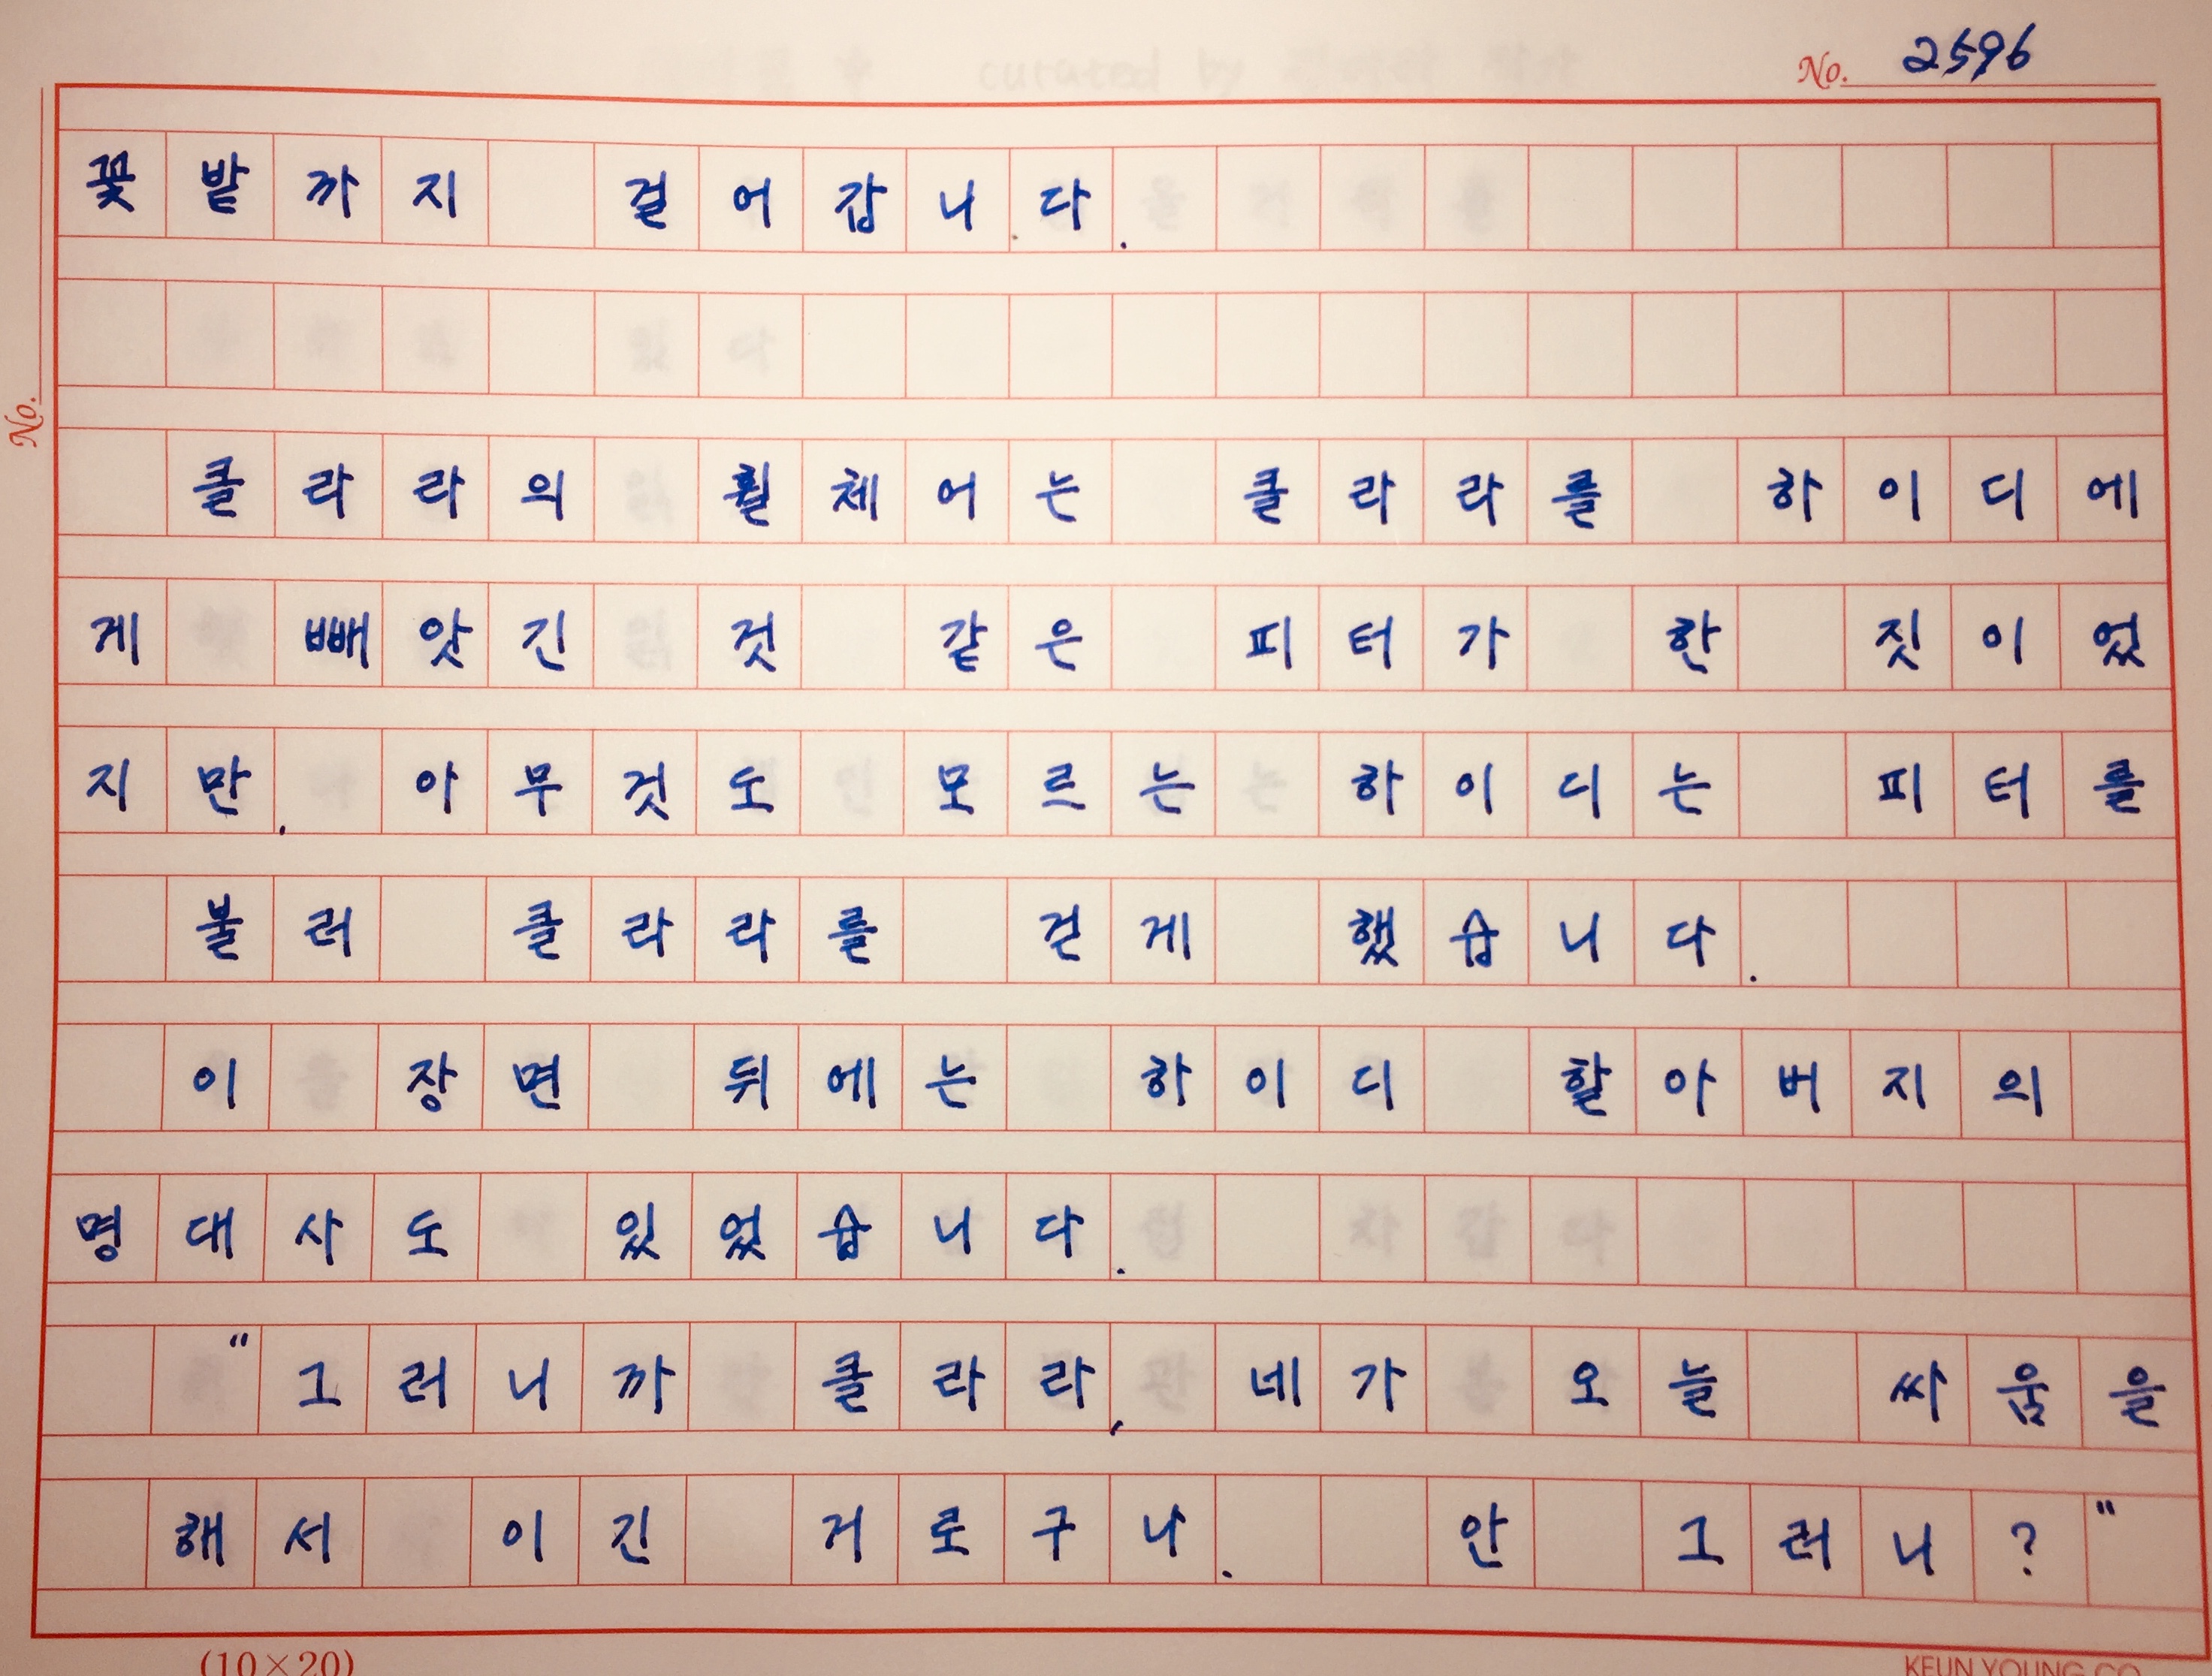 No. 2596
꽃밭까지 걸어갑니다.
클라라의 휠체어는 클라라를 하이디에
게 빼앗긴 것 같은 피터가 한 짓이었
지만. 아무것도 모르는 하이디는 피터를
불러 클라라를 걷게 했습니다.
이 장면 뒤에는 하이디 할아버지의
명대사도 있었습니다.
“그러니까 클라라, 네가 오늘 싸움을
해서 이긴 거로구나. 안 그러니?”
No.
(10×20)
KEUN YOUNG CO.